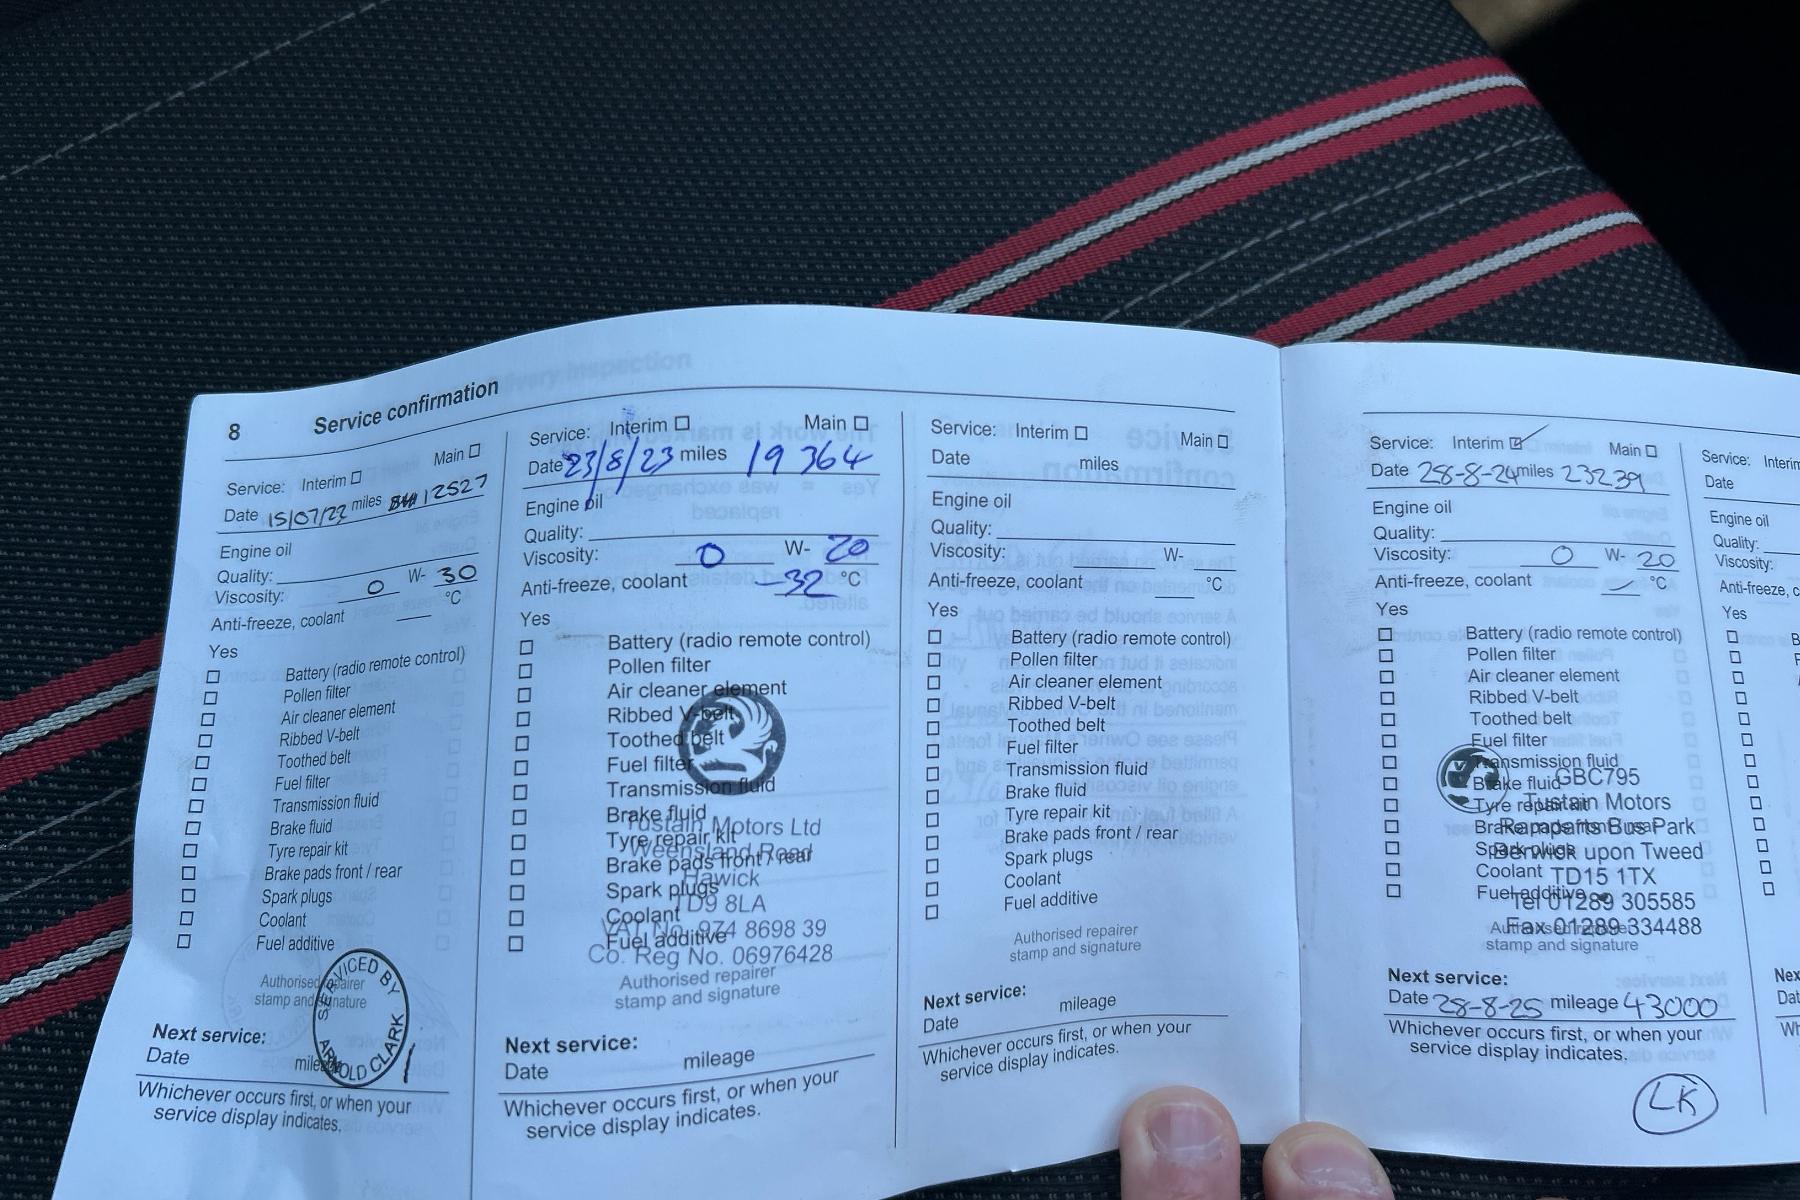 8 Service confirmation
Service: Interim ☐ Main ☐
Date 15/07/22 miles 12527
Engine oil
Quality:
Viscosity: 0 W- 30
Anti-freeze, coolant °C
Yes
☐ Battery (radio remote control)
☐ Pollen filter
☐ Air cleaner element
☐ Ribbed V-belt
☐ Toothed belt
☐ Fuel filter
☐ Transmission fluid
☐ Brake fluid
☐ Tyre repair kit
☐ Brake pads front / rear
☐ Spark plugs
☐ Coolant
☐ Fuel additive
Authorised repairer
stamp and signature
SERVICED BY
ARNOLD CLARK
Next service:
Date mileage
Whichever occurs first, or when your
service display indicates.
Service: Interim ☐ Main ☐
Date 23/8/23 miles 19 364
Engine oil
Quality:
Viscosity: 0 W- 20
Anti-freeze, coolant -32 °C
Yes
☐ Battery (radio remote control)
☐ Pollen filter
☐ Air cleaner element
☐ Ribbed V-belt
☐ Toothed belt
☐ Fuel filter
☐ Transmission fluid
☐ Brake fluid
☐ Tyre repair kit
☐ Brake pads front / rear
☐ Spark plugs
☐ Coolant
☐ Fuel additive
Tustain Motors Ltd
Weensland Road
Hawick
TD9 8LA
VAT No. 974 8698 39
Co. Reg No. 06976428
Authorised repairer
stamp and signature
Next service:
Date mileage
Whichever occurs first, or when your
service display indicates.
Service: Interim ☐ Main ☐
Date miles
Engine oil
Quality:
Viscosity: W-
Anti-freeze, coolant °C
Yes
☐ Battery (radio remote control)
☐ Pollen filter
☐ Air cleaner element
☐ Ribbed V-belt
☐ Toothed belt
☐ Fuel filter
☐ Transmission fluid
☐ Brake fluid
☐ Tyre repair kit
☐ Brake pads front / rear
☐ Spark plugs
☐ Coolant
☐ Fuel additive
Authorised repairer
stamp and signature
Next service:
Date mileage
Whichever occurs first, or when your
service display indicates.
Service: Interim ☑ Main ☐
Date 28-8-24 miles 23239
Engine oil
Quality:
Viscosity: 0 W- 20
Anti-freeze, coolant — °C
Yes
☐ Battery (radio remote control)
☐ Pollen filter
☐ Air cleaner element
☐ Ribbed V-belt
☐ Toothed belt
☐ Fuel filter
☐ Transmission fluid
☐ Brake fluid
☐ Tyre repair kit
☐ Brake pads front / rear
☐ Spark plugs
☐ Coolant
☐ Fuel additive
GBC795
Tustain Motors
Ramparts Bus Park
Berwick upon Tweed
TD15 1TX
Tel 01289 305585
Fax 01289 334488
Authorised repairer
stamp and signature
Next service:
Date 28-8-25 mileage 43000
Whichever occurs first, or when your
service display indicates.
LK
Service: Interim
Date
Engine oil
Quality:
Viscosity:
Anti-freeze, c
Yes